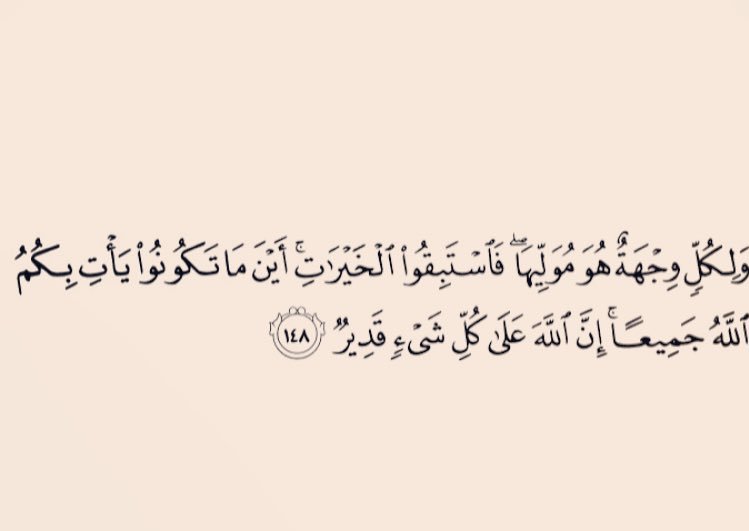 وَلِكُلٍّ وِجْهَةٌ هُوَ مُوَلِّيهَا ۖ فَٱسْتَبِقُوا۟ ٱلْخَيْرَٰتِ ۚ أَيْنَ مَا تَكُونُوا۟ يَأْتِ بِكُمُ
ٱللَّهُ جَمِيعًا ۚ إِنَّ ٱللَّهَ عَلَىٰ كُلِّ شَىْءٍ قَدِيرٌ ١٤٨